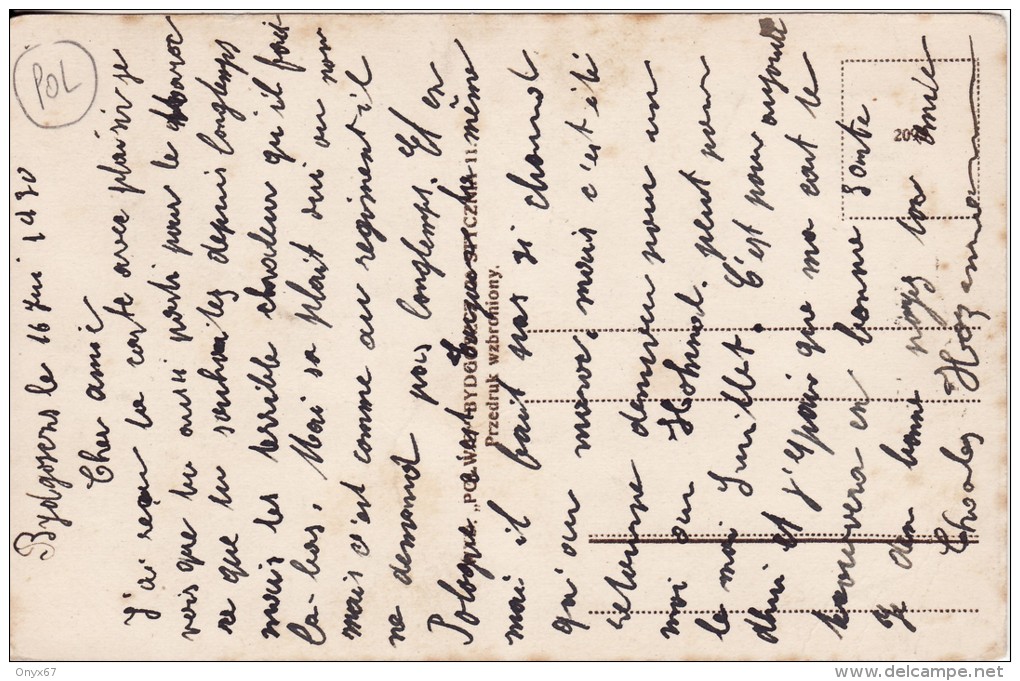 POL
Bydgosens le 16 Jui 1930
Cher amie
J'ai reçu la carte avec plaisir je
vois que tu ausii partis pour le Maroc
ce que tu souhaites depuis longtemps
mais les terrible chaudeur qu'il fait
la-bas. Mai sa plait oui ou non
mais c'est comme au regiment il
ne demand pas longtemps. Et en
Pologne c'est la même
mai il fait pas si chaud
qu'au maroc, mais c'est été
retourne demeure pour un
moi au Hohneck. peut pour
le moi Juillet. C'est pour aujourd
dhui et j'espair que ma cart te
trouvera en bonne Sante
Je den
Charles
"POLWAR" BYDGOSZCZ STYCZNIA 11.
Przedruk wzbroniony.
209
Onyx67
www.delcampe.net